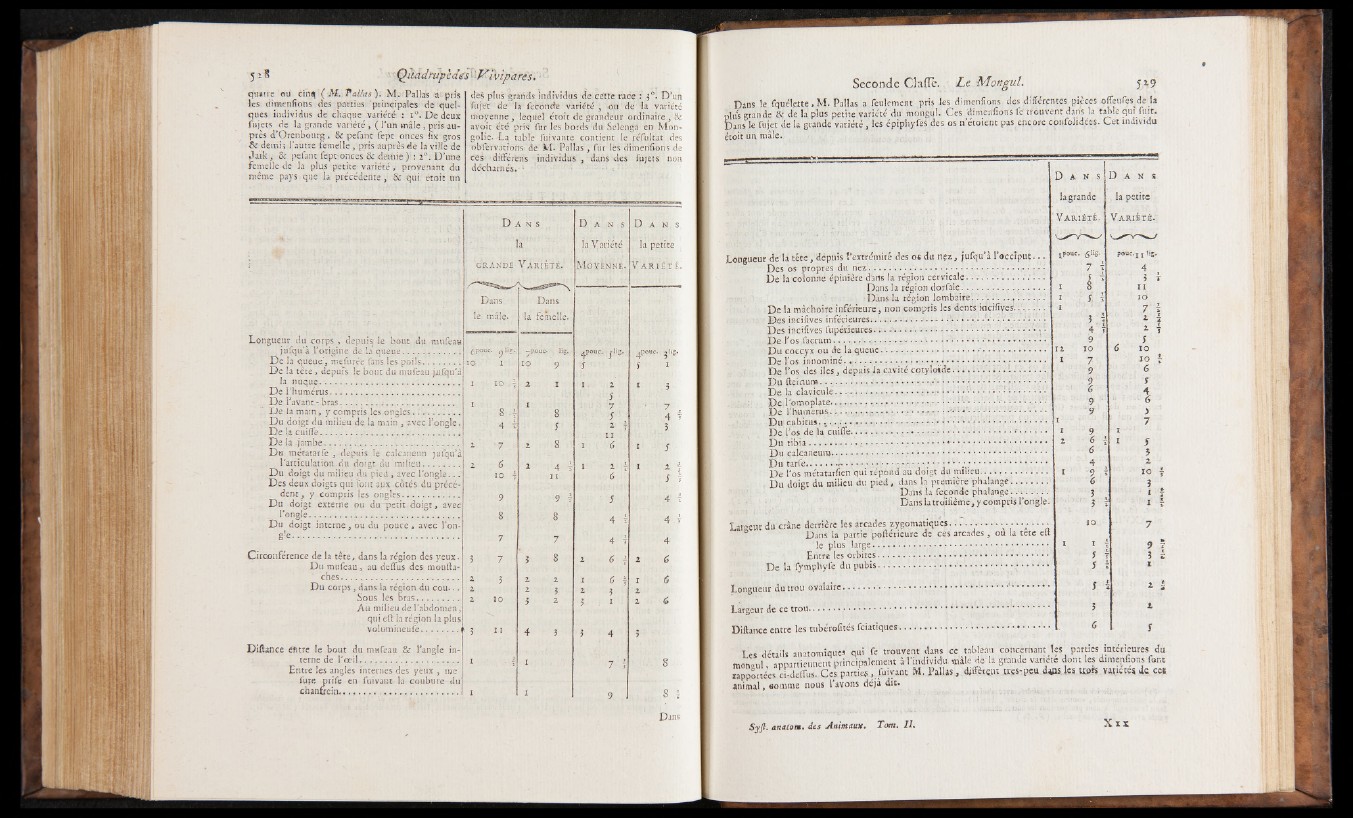 528 Quadrupèdes Vivipares.
quatre ou cinq ( M. Pallas ). M. Pallas a pris
les dimenſions des parties principales de quel-
ques individus de chaque variété : 1°. De deux
ſujets de la grande variété , ( l'un mâle , pris au-
près d'Orenbourg, & peſant ſept onces ſix gros
& demi ; l'autre femelle , pris auprès de la ville de
Jaik , & peſant ſept onces & demie ) : 2°. D'une
femelle de la plus petite variété , provenant du
même pays que la précédente , & qui étoit un
des plus grands individus de cette race : 3°. D'un
ſujet de la ſeconde variété , ou de la variété
moyenne , lequel étoit de grandeur ordinaire , &
avoit été pris ſur les bords du Selenga en Mon-
golie. La table ſuivante contient le réſultat des
obſervations de M. Pallas , ſur les dimenſions de
ces différens individus , dans des ſujets non
décharnés.
DANS DANS DANS
la la Variété la petite
GRANDE VARIÉTÉ. MOYENNE. VARIÉTÉ.
Dans Dans
le mâle. la femelle.
Longueur du corps , depuis le bout du muſeau
juſqu'à l'origine de la queue 6pouc. 9lig. 7pouc. lig. 4pouc. 3lig. 4pouc. 3lig.
De la queue, meſurée ſans les poils 10 1 10 9 5 5 1
De la tête , depuis le bout du muſeau juſqu'à
la nuque 1 10 ½ 2 1 1 2 1 3
De l'humérus 5
De l'avant-bras 1 1 7 7
De la main , y compris les ongles 8 ½ 8 5 4 ½
Du doigt du milieu de la main , avec l'ongle. 4 ½ 5 2 ½ 3
De la cuiſſe 11
De la jambe 2 7 2 8 1 6 1 5
Du métatarſe , depuis le calcaneum juſqu'à
l'articulation du doigt du milieu 2 6 2 4 ½ 1 2 ½ 1 2 ½
Du doigt du milieu du pied , avec l'ongle 10 ½ 11 6 5 ½
Des deux doigts qui ſont aux côtés du précé-
dent , y compris les ongles 9 9 ½ 5 4 ½
Du doigt externe ou du petit doigt , avec
l'ongle 8 8 4 ½ 4 ½
Du doigt interne , ou du pouce , avec l'on-
gle 7 7 4 ½ 4
Circonférence de la tête, dans la région des yeux. 3 7 3 8 2 6 ½ 2 6
Du muſeau , au deſſus des mouſta-
ches 2 3 2 2 1 6 ½ 1 6
Du corps , dans la région du cou 2 2 3 2 3 2
Sous les bras 2 10 3 2 3 1 2 6
Au milieu de l'abdomen ,
qui eſt la région la plus
volumineuſe 3 11 4 3 3 4 3
Diſtance entre le bout du muſeau & l'angle in-
terne de l'œil 1 ½ 1 7 ½ 8
Entre les angles internes des yeux , me-
ſure priſe en ſuivant la courbure du
chanfrein 1 1 9 8 ½
Dans
Seconde Claſſe. Le Mongul. 529
Dans le ſquélette , M. Pallas a ſeulement pris les dimenſions des différentes pièces oſſeuſes de la
plus grande & de la plus petite variété du mongul. Ces dimenſions ſe trouvent dans la table qui ſuit.
Dans le ſujet de la grande variété , les épiphyſes des os n'étoient pas encore conſolidées. Cet individu
étoit un mâle.
DANS DANS
la grande la petite
VARIÉTÉ. VARIÉTÉ.
Longueur de la tête , depuis l'extrémité des os du nez , juſqu'à l'occiput 1pouc. 6lig. pouc. 11 lig.
Des os propres du nez 7 ½ 4
De la colonne épinière dans la région cervicale 5 ½ 3 ½
Dans la région dorſale 1 8 11
Dans la région lombaire 1 5 ½ 10
De la mâchoire inférieure , non compris les dents inciſives 1 7 ½
Des inciſives inférieures 3 ½ 2 ½
Des inciſives ſupérieures 4 ½ 2 ½
De l'os ſacrum 9 5
Du coccyx ou de la queue 12 10 6 10
De l'os innominé 1 7 10 ½
De l'os des iles , depuis la cavité cotyloïde 9 6
Du ſternum 9 5
De la clavicule 6 4
De l'omoplate 9 6
De l'humérus 9 5
Du cubitus 1 7
De l'os de la cuiſſe 1 9 1
Du tibia 2 6 ½ 1 5
Du calcaneum 6 3
Du tarſe 4 2
De l'os métatarſien qui répond au doigt du milieu 1 9 ½ 10 ½
Du doigt du milieu du pied , dans la première phalange 6 3
Dans la ſeconde phalange 3 1 ½
Dans la troiſième, y compris l'ongle. 3 ½ 1 ½
Largeur du crâne derrière les arcades zygomatiques 10 7
Dans la partie poſtérieure de ces arcades , où la tête eſt
le plus large 1 1 ½ 9 ½
Entre les orbites 5 ½ 3 ½
De la ſymphyſe du pubis 5 ½ 1
Longueur du trou ovalaire 5 ½ 2 ½
Largeur de ce trou 3 2
Diſtance entre les tubéroſités ſciatiques 6 5
Les détails anatomiques qui ſe trouvent dans ce tableau concernant les parties intérieures du
mongul , appartiennent principalement à l'individu mâle de la grande variété dont les dimenſions ſont
rapportées ci-deſſus. Ces parties , ſuivant M. Pallas , diffèrent très-peu dans les trois variétés de cet
animal , comme nous l'avons déjà dit.
Syſt. anatom. des Animaux. Tom. II. Xxx